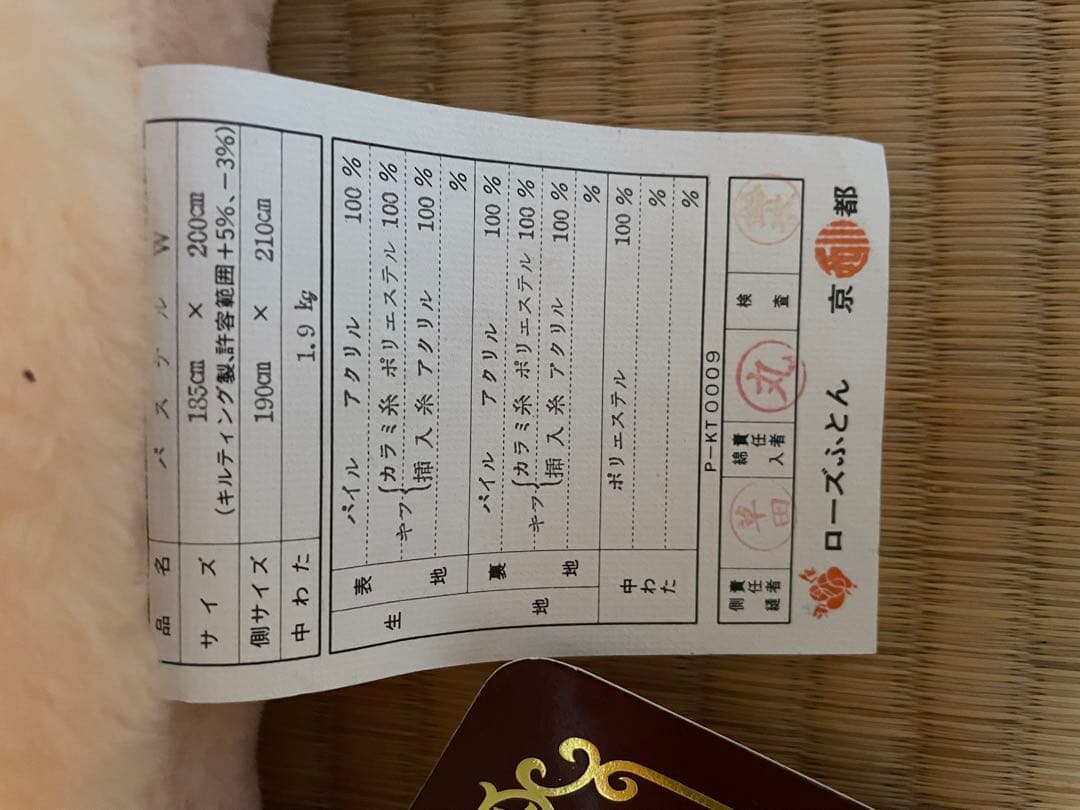 品名 パステル W
サイズ 185cm × 200cm
(キルティング製、許容範囲+5%、−3%)
側サイズ 190cm × 210cm
中わた 1.9 kg
生地 表地 パイル アクリル 100 %
キフ{カラミ糸 ポリエステル 100 %
挿入糸 アクリル 100 %
%
裏地 パイル アクリル 100 %
キフ{カラミ糸 ポリエステル 100 %
挿入糸 アクリル 100 %
%
中わた ポリエステル 100 %
%
%
P-KT0009
側責任縫者 草田 綿責任入者 丸 検査
ローズふとん 京都